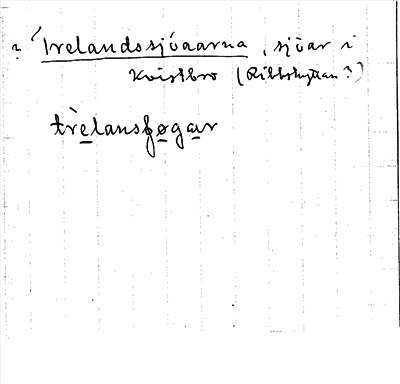 ? Trelandssjöarna, sjöar i
Kvistbro (Ribbohyttan?)
trèlansføgar